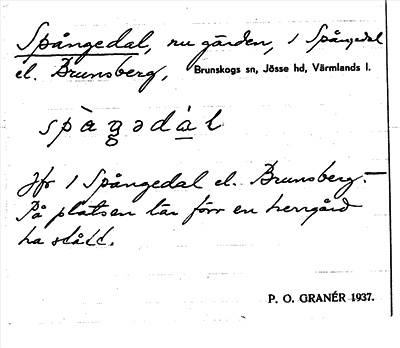 Spångedal, nu gården, 1 Spångedal
el. Brunsberg, Brunskogs sn, Jösse hd, Värmlands l.
spàŋədà̠l
Jfr 1 Spångedal el. Brunsberg.—
På platsen lär förr en herrgård
ha stått.
P. O. GRANÉR 1937.